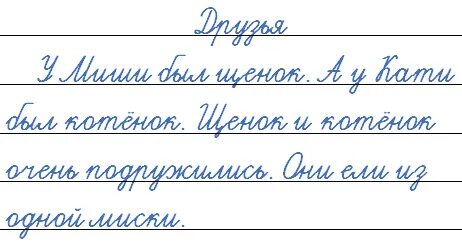 Друзья
У Миши был щенок. А у Кати
был котёнок. Щенок и котёнок
очень подружились. Они ели из
одной миски.